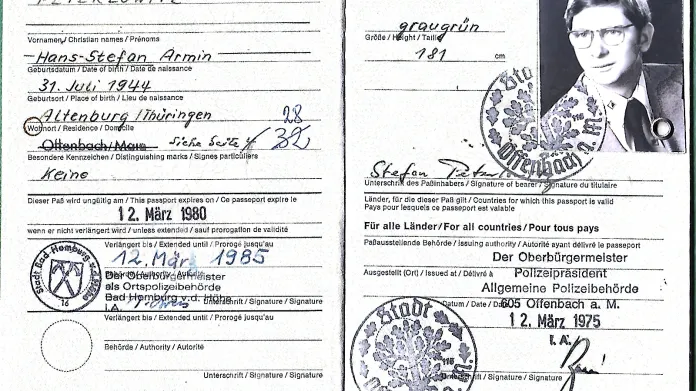 Vornamen / Christian names / Prénoms
Hans-Stefan Armin
Geburtsdatum / Date of birth / Date de naissance
31. Juli 1944
Geburtsort / Place of birth / Lieu de naissance
Altenburg /Thüringen
28
Wohnort / Residence / Domicile
Offenbach/Main siehe Seite 4 32
Besondere Kennzeichen / Distinguishing marks / Signes particuliers
Keine
Dieser Paß wird ungültig am / This passport expires on / Ce passeport expire le
12. März 1980
wenn er nicht verlängert wird / unless extended / sauf prorogation de validité
Verlängert bis / Extended until / Prorogé jusqu'au
12. März 1985
Behörde / Authority / Autorité
Der Oberbürgermeister
als Ortspolizeibehörde
Bad Homburg v.d. Höhe
I.A.
Unterschrift / Signature / Signature
Stadt Bad Homburg v.d. Höhe
16
Verlängert bis / Extended until / Prorogé jusqu'au
Behörde / Authority / Autorité
Unterschrift / Signature / Signature
graugrün
Größe / Height / Taille
181 cm
Stadt
Offenbach a. M.
116
Stefan
Unterschrift des Paßinhabers / Signature of bearer / Signature du titulaire
Länder, für die dieser Paß gilt / Countries for which this passport is valid
Pays pour lesquels ce passeport est valable
Für alle Länder/For all countries/Pour tous pays
Paßausstellende Behörde / Issuing authority / Autorité ayant délivré le passeport
Der Oberbürgermeister
Ausgestellt (Ort) / Issued at / Délivré à
Polizeipräsident
Allgemeine Polizeibehörde
Datum / Date / Date
605 Offenbach a. M.
12. März 1975
I. A.
Stadt
116
Unterschrift / Signature / Signature